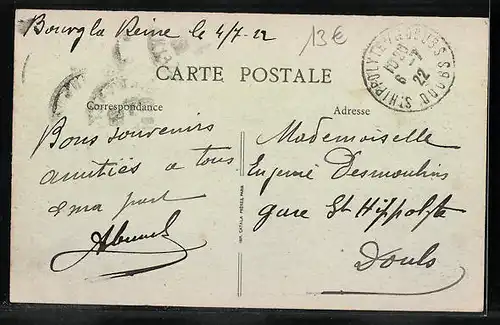 Bourg la Reine le 4/7-22
13€
CARTE POSTALE
Correspondance
Adresse
Bons souvenirs
amitiés a tous
de ma part
Mademoiselle
Eugenie Desmoulins
gare St Hippolyte
Doubs
IMP. CATALA FRÈRES, PARIS
ST HIPPOLYTE DOUBS
22